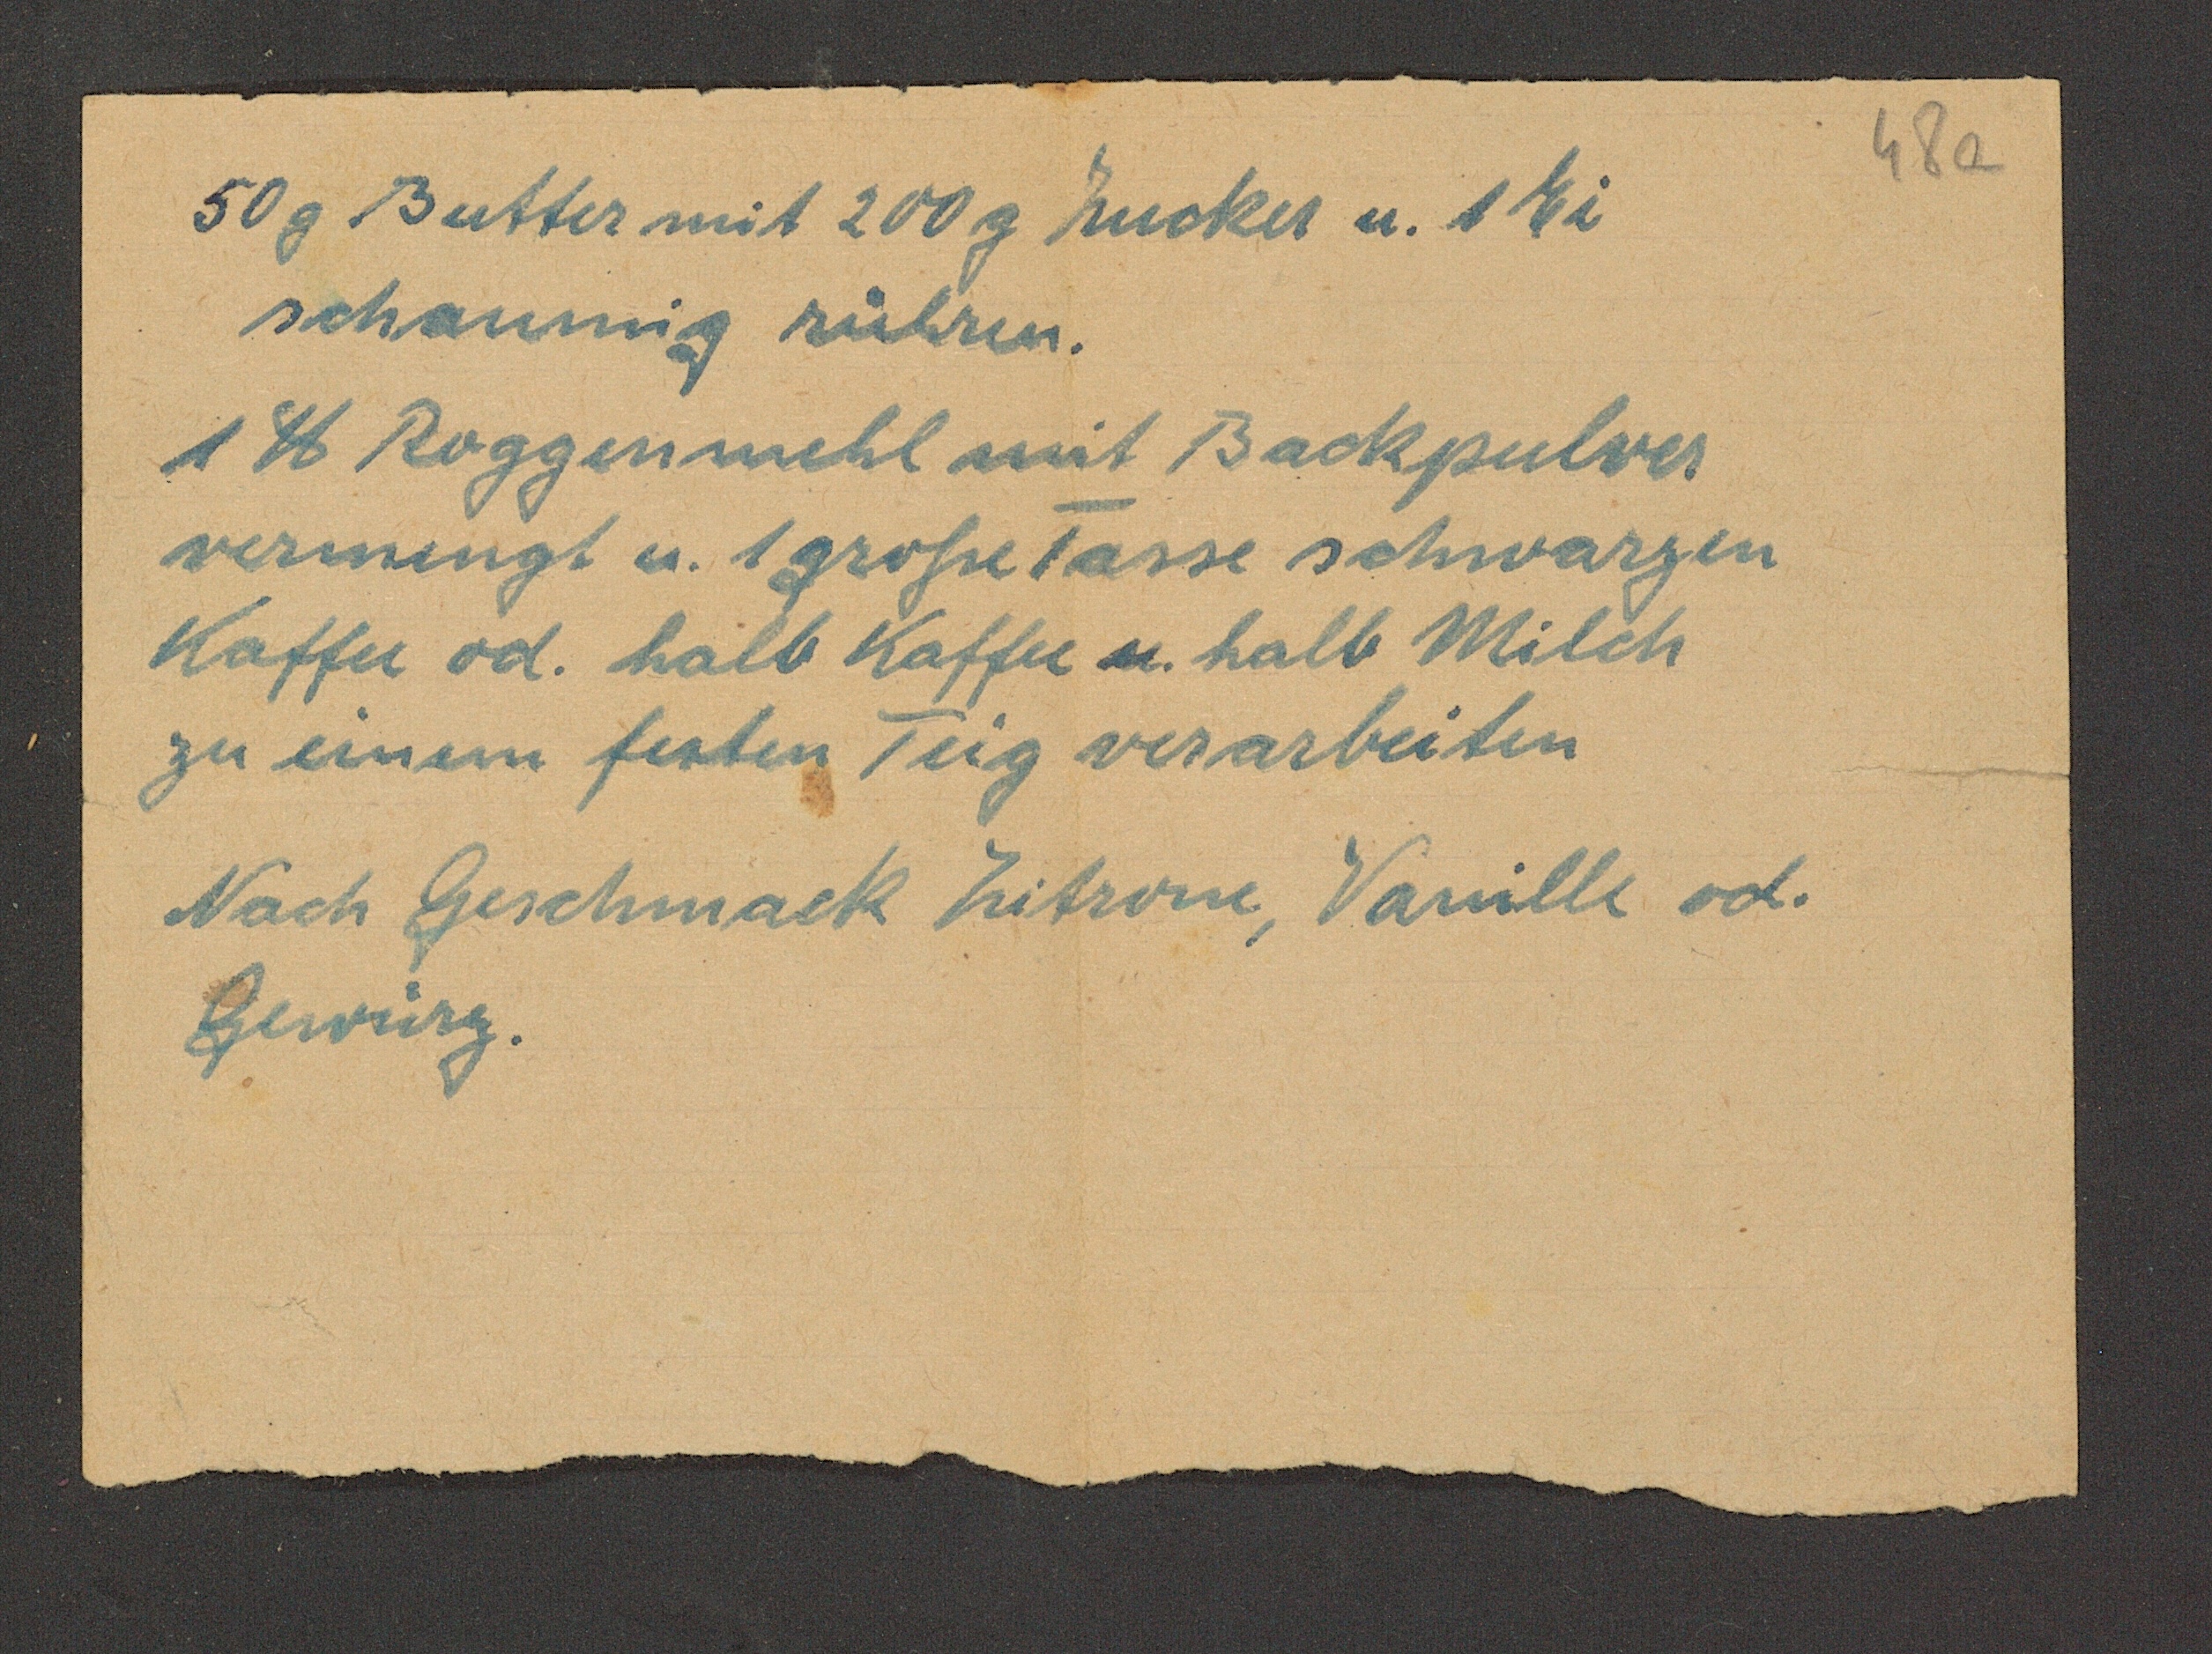 48a
50 g Butter mit 200 g Zucker u. 1 Ei
schaumig rühren.
1 ℔ Roggenmehl mit Backpulver
vermengt u. 1 große Tasse schwarzen
Kaffee od. halb Kaffee u. halb Milch
zu einem festen Teig verarbeiten
Nach Geschmack Zitrone, Vanille od.
Gewürz.